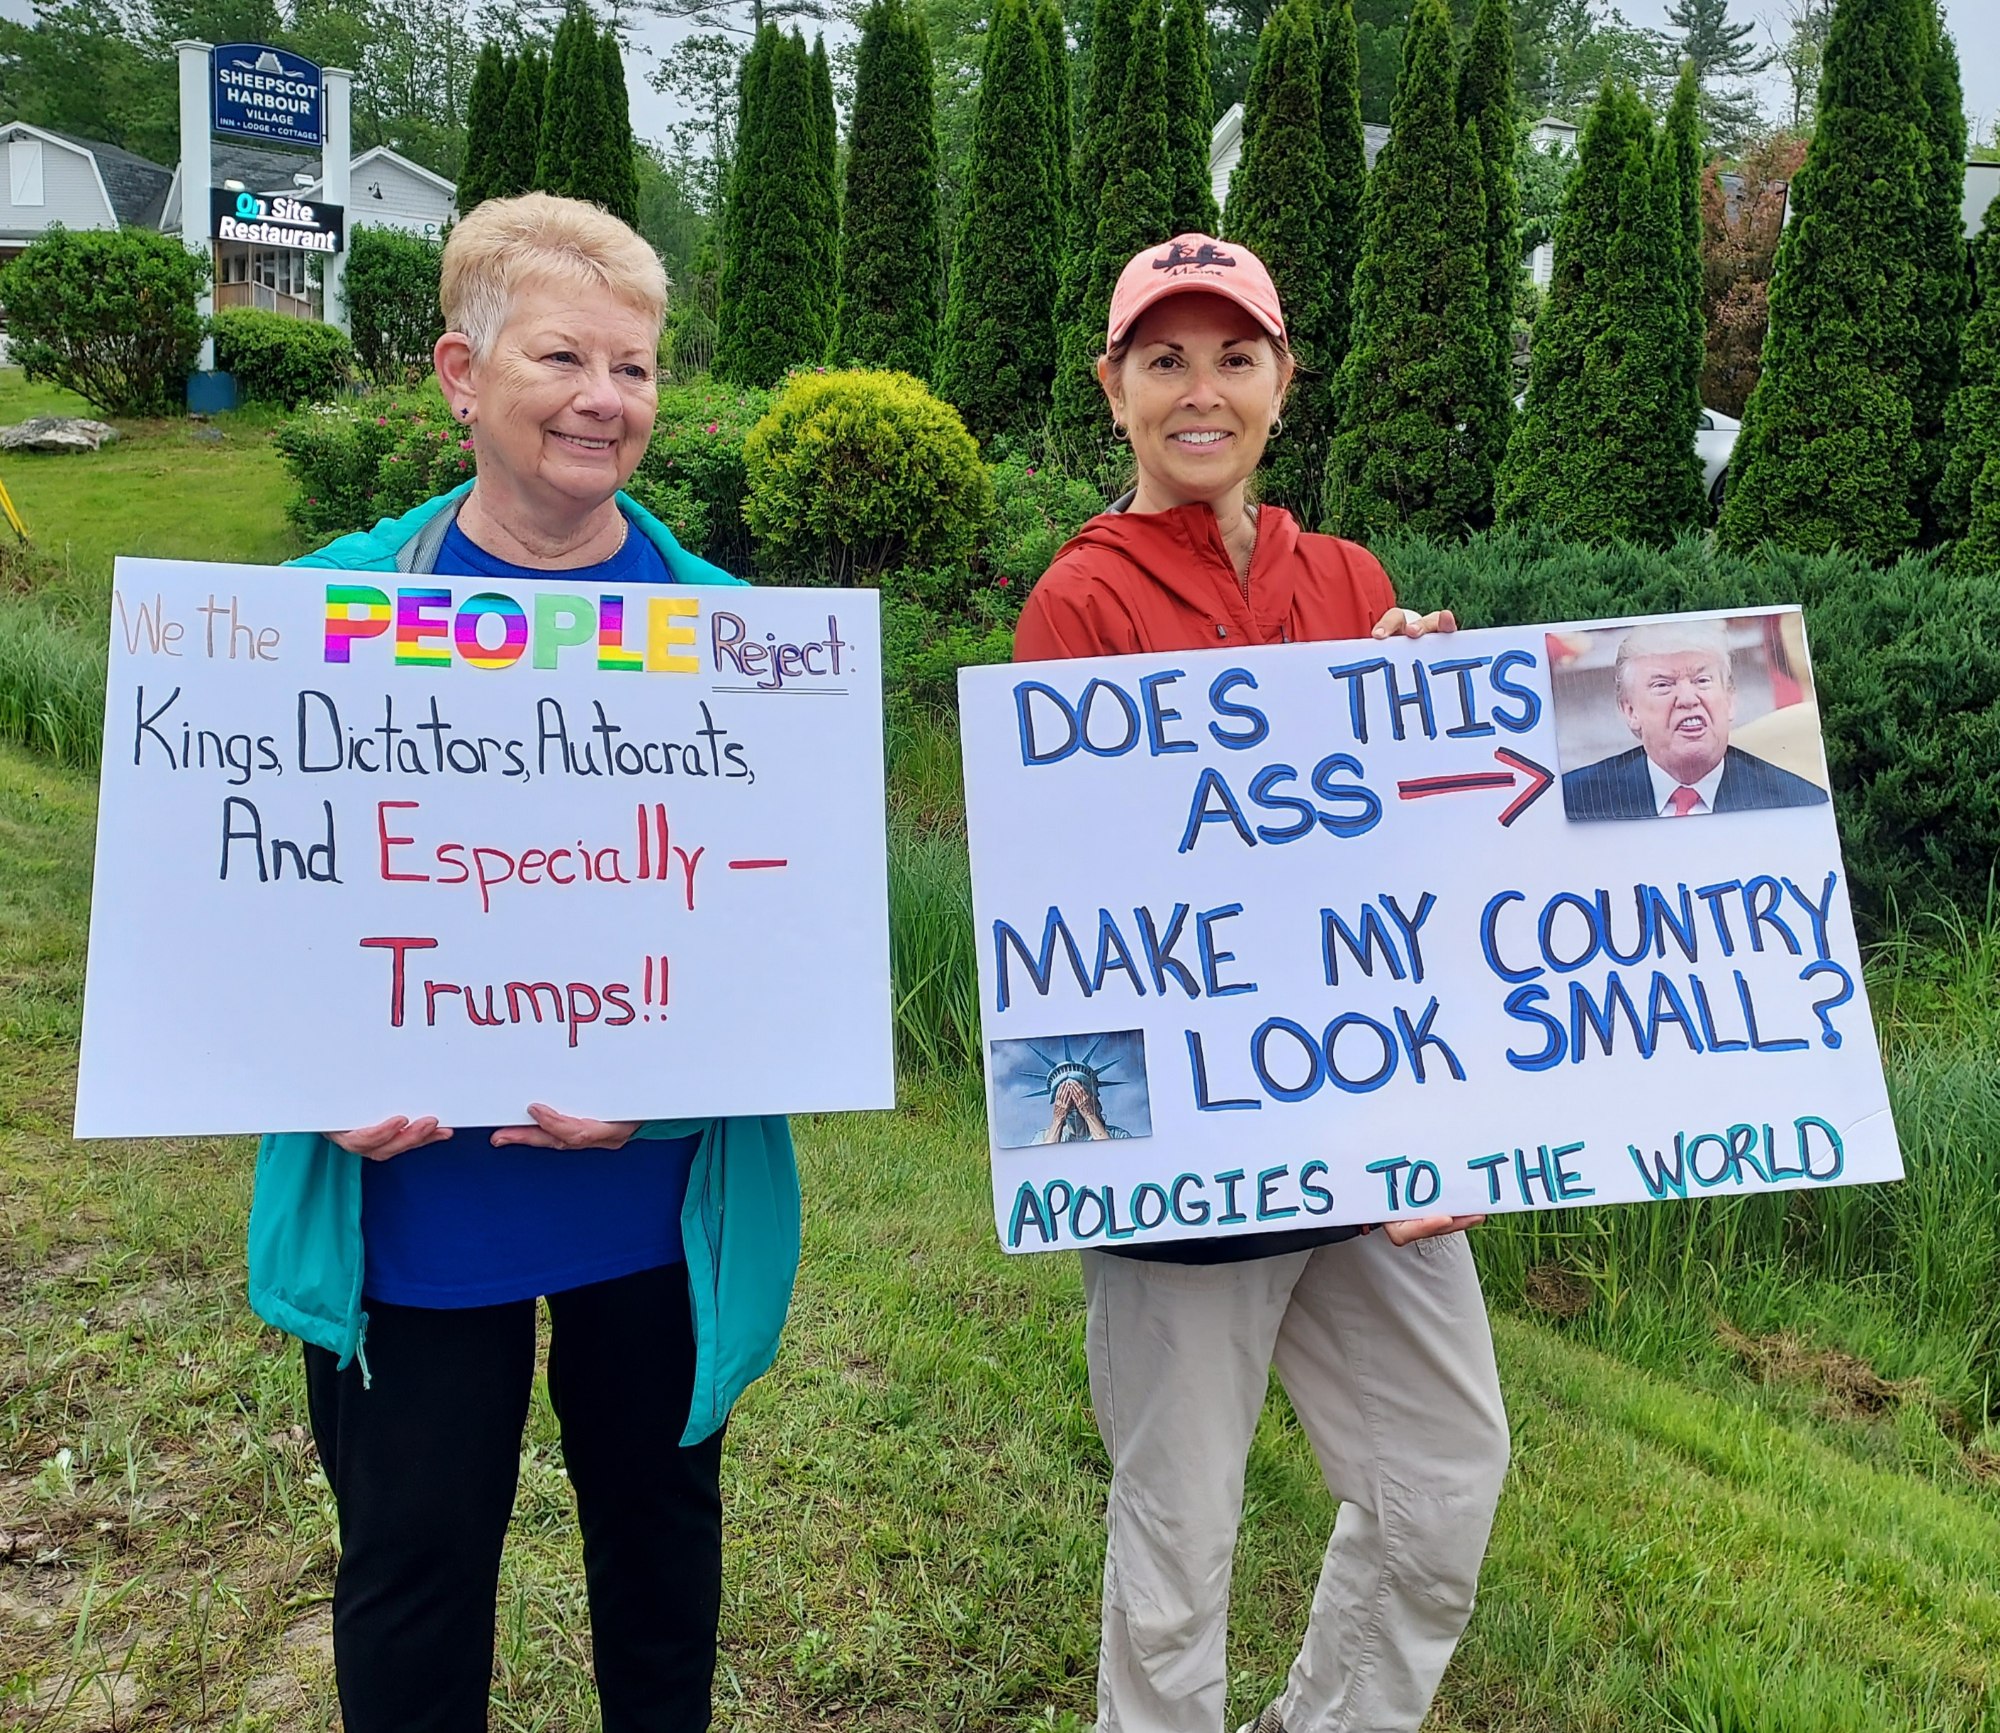 SHEEPSCOT
HARBOUR
VILLAGE
INN • LODGE • COTTAGES
On Site
Restaurant
Maine
We the PEOPLE Reject:
Kings, Dictators, Autocrats,
And Especially —
Trumps!!
DOES THIS
ASS →
MAKE MY COUNTRY
LOOK SMALL?
APOLOGIES TO THE WORLD